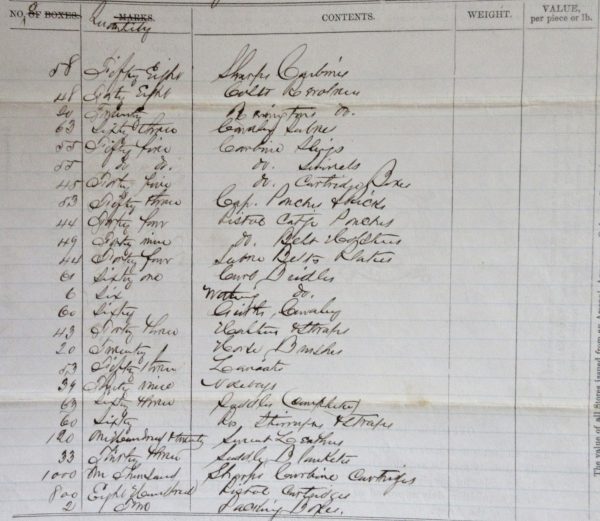 NO. OF BOXES. MARKS. Quantity CONTENTS. WEIGHT. VALUE, per piece or lb.
58 Fifty Eight Sharps Carbines
48 Forty Eight Colts Revolvers
20 Twenty Remingtons do.
63 Sixty three Cavalry Sabres
55 Fifty five Carbine Slings
55 do do. do. Swivels
45 Forty five do. Cartridge Boxes
53 Fifty three Cap. Pouches & Picks
44 Forty four Pistol Catge Pouches
49 Forty nine do. Belt Holsters
44 Forty four Sabre Belts & Plates
61 Sixty one Curb Bridles
6 Six Watering do.
60 Sixty Girths, Cavalry
43 Forty three Halters & Straps
20 Twenty Horse Brushes
53 Fifty three Lariats
39 Thirty nine
63 Sixty three Saddles (complete)
60 Sixty do Stirrups & Straps
120 One hundred & twenty Leathers
33 Thirty three Saddle Blankets
1000 One Thousand Sharps Carbine Cartriges
800 Eight Hundred Pistol Cartridges
2 Two Packing Boxes.
The value of all Stores issued from an